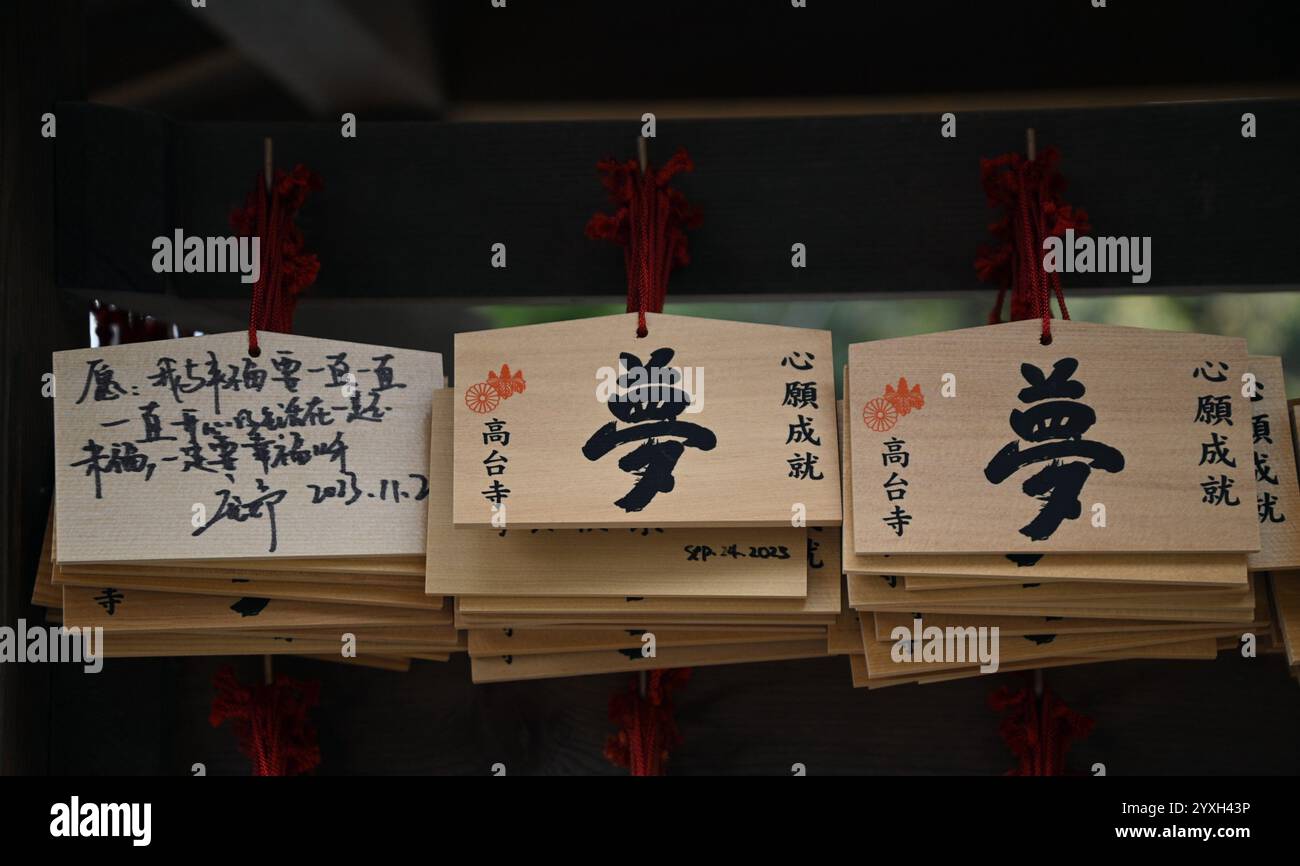 愿：我与来福要一直一直
一直开心的生活在一起
来福，一定要幸福呀
2023.11.2
夢
心願成就
高台寺
Sep. 24. 2023
夢
心願成就
高台寺
心願成就
寺
alamy
alamy
Image ID: 2YXH43P
www.alamy.com